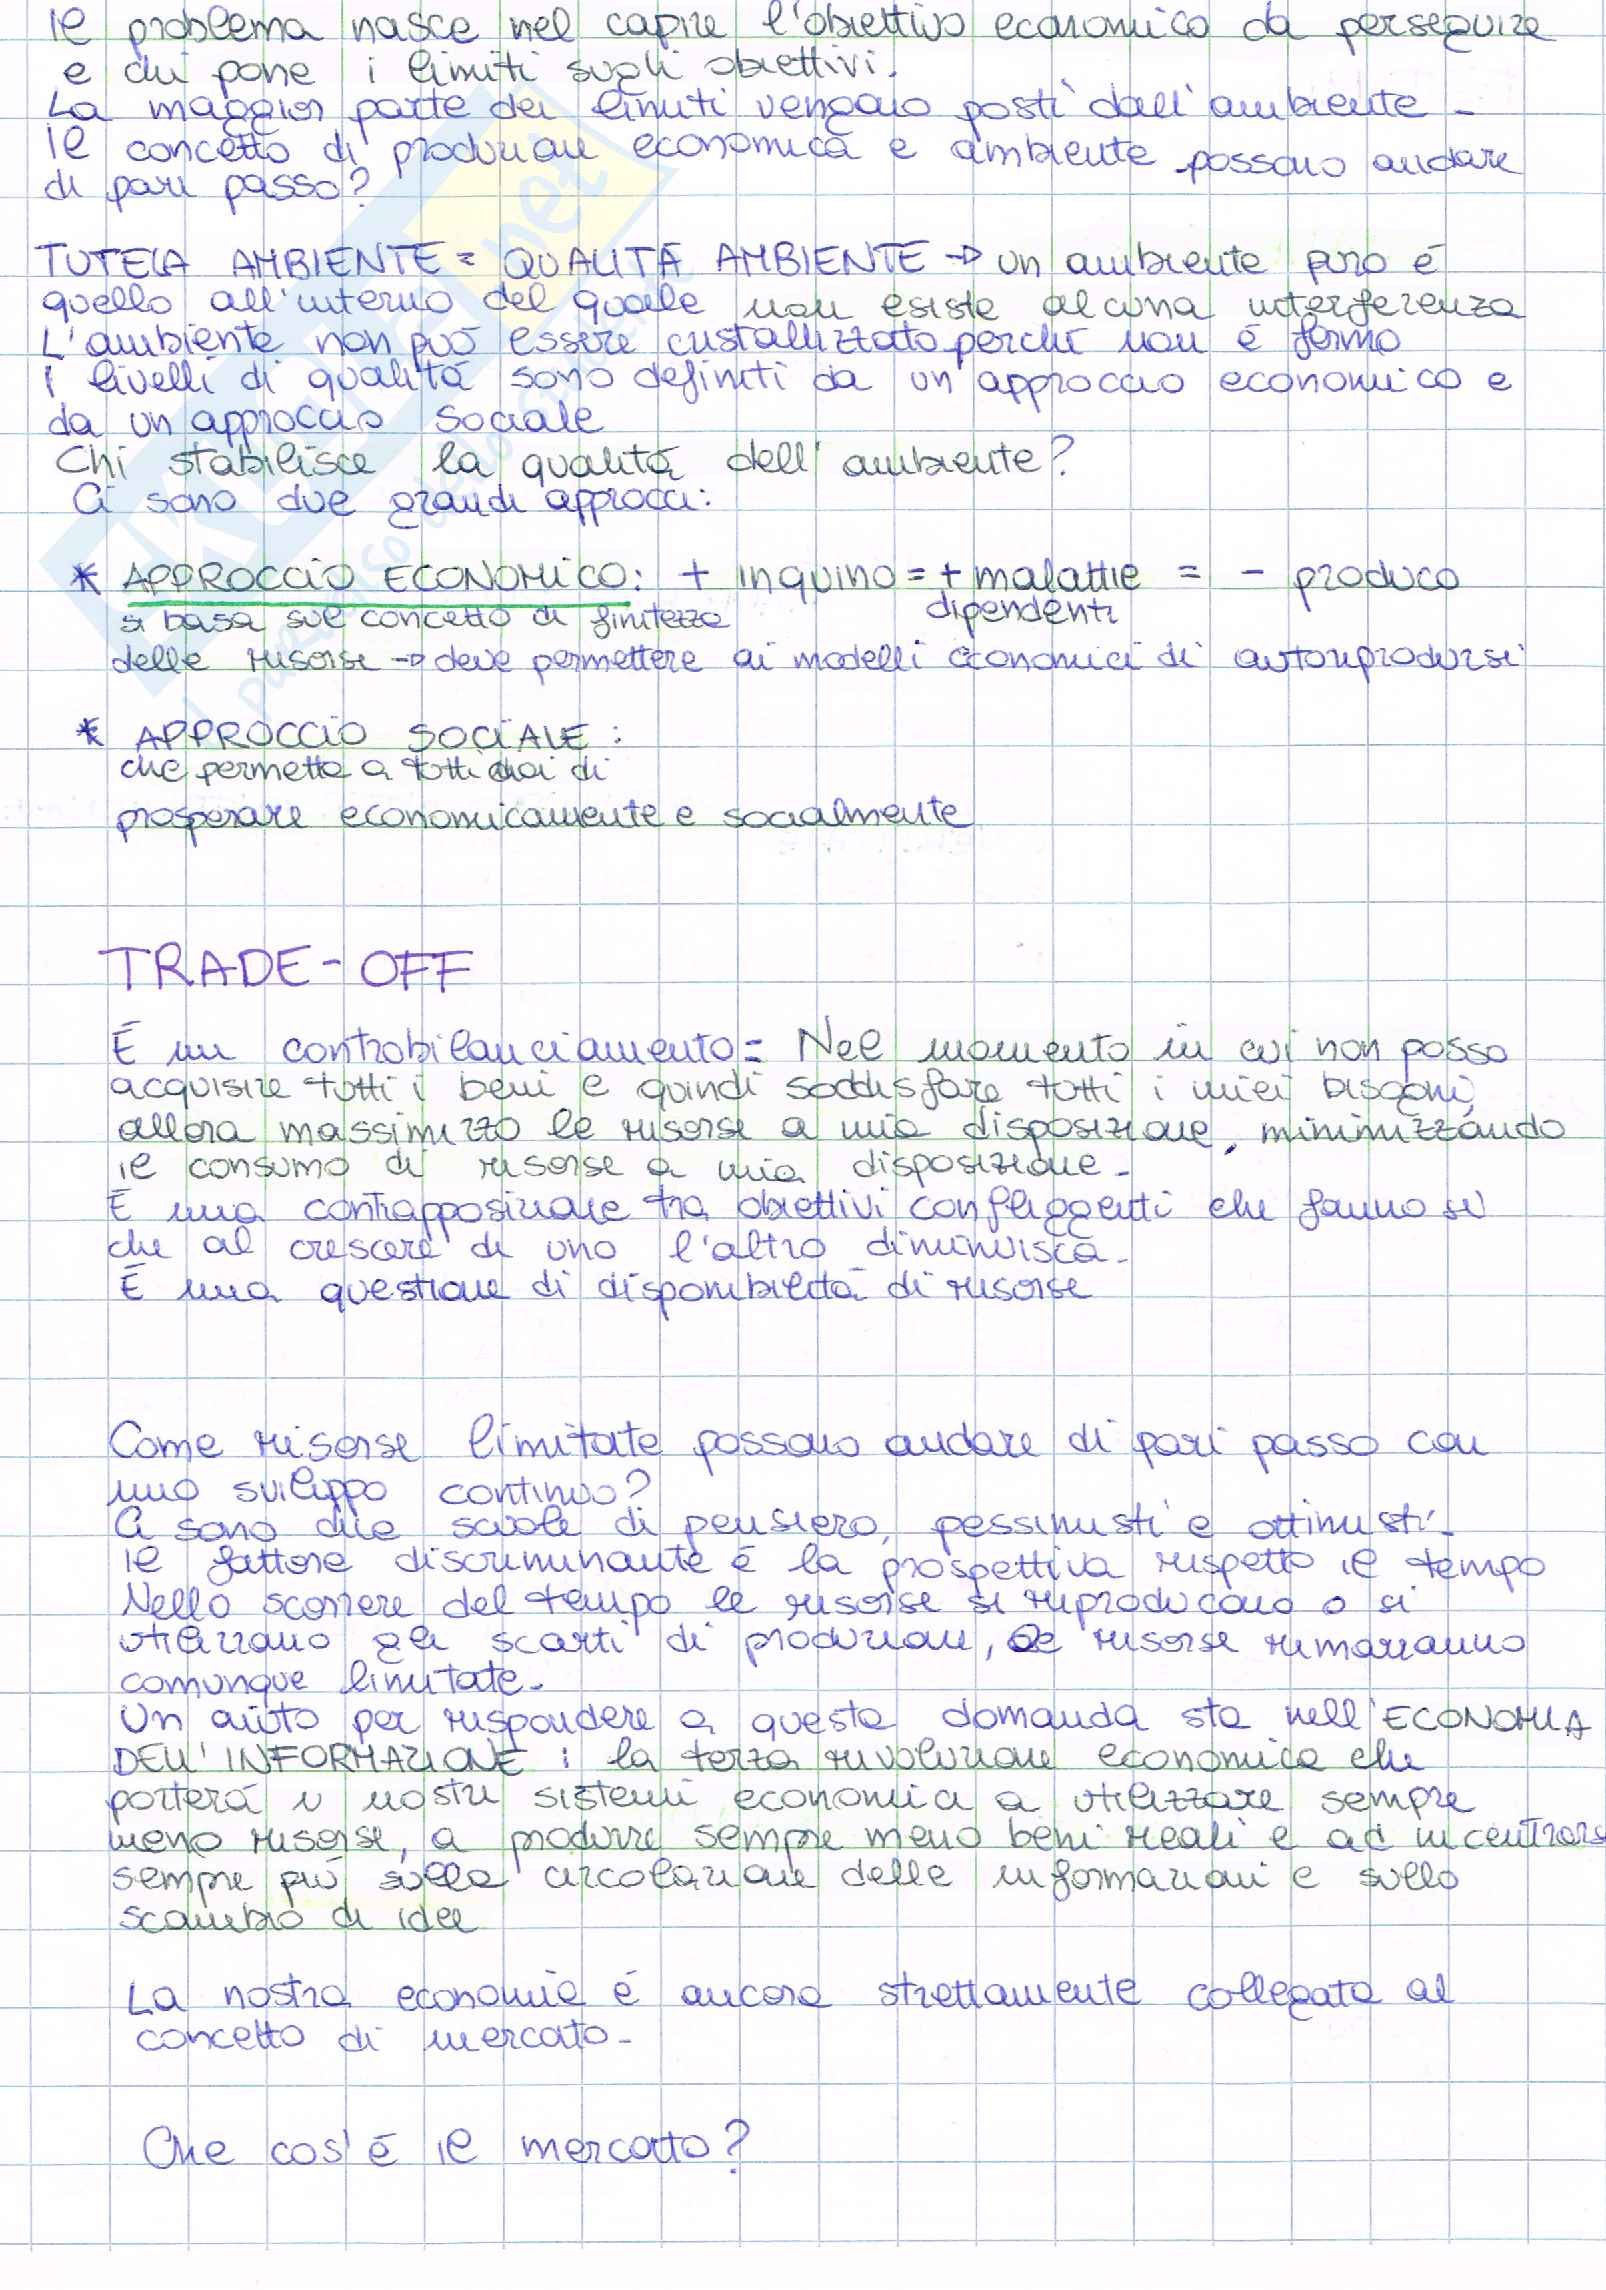 Il problema nasce nel capire l'obiettivo economico da perseguire
e chi pone i limiti sugli obiettivi.
La maggior parte dei limiti vengono posti dall'ambiente -
Il concetto di produzione economica e ambiente possono andare
di pari passo?
TUTELA AMBIENTE = QUALITÁ AMBIENTE → un ambiente puro é
quello all'interno del quale non esiste alcuna interferenza
L'ambiente non puó essere cristallizzato perché non é fermo
I livelli di qualitá sono definiti da un approccio economico e
da un approccio sociale
Chi stabilisce la qualitá dell'ambiente?
Ci sono due grandi approcci:
* APPROCCIO ECONOMICO: + inquino = + malattie = - produco
dipendenti
si basa sul concetto di finitezza
delle risorse → deve permettere ai modelli economici di autoriprodursi
* APPROCCIO SOCIALE:
che permetta a tutti di
prosperare economicamente e socialmente
TRADE-OFF
É un controbilanciamento = Nel momento in cui non posso
acquisire tutti i beni e quindi soddisfare tutti i miei bisogni,
allora massimizzo le risorse a mia disposizione, minimizzando
il consumo di risorse a mia disposizione -
É una contrapposizione tra obiettivi confliggenti che fanno sí
che al crescere di uno l'altro diminuisca -
É una questione di disponibilitá di risorse
Come risorse limitate possono andare di pari passo con
uno sviluppo continuo?
Ci sono due scuole di pensiero, pessimisti e ottimisti -
Il fattore discriminante é la prospettiva rispetto il tempo
Nello scorrere del tempo le risorse si riproducono o si
utilizzano gli scarti di produzione, le risorse rimarranno
comunque limitate -
Un aiuto per rispondere a questa domanda sta nell'ECONOMIA
DELL'INFORMAZIONE : la terza rivoluzione economica che
porterá i nostri sistemi economici a utilizzare sempre
meno risorse, a produrre sempre meno beni reali e ad incentrarsi
sempre piú sulla circolazione delle informazioni e sullo
scambio di idee
La nostra economia é ancora strettamente collegata al
concetto di mercato -
Che cos'é il mercato?